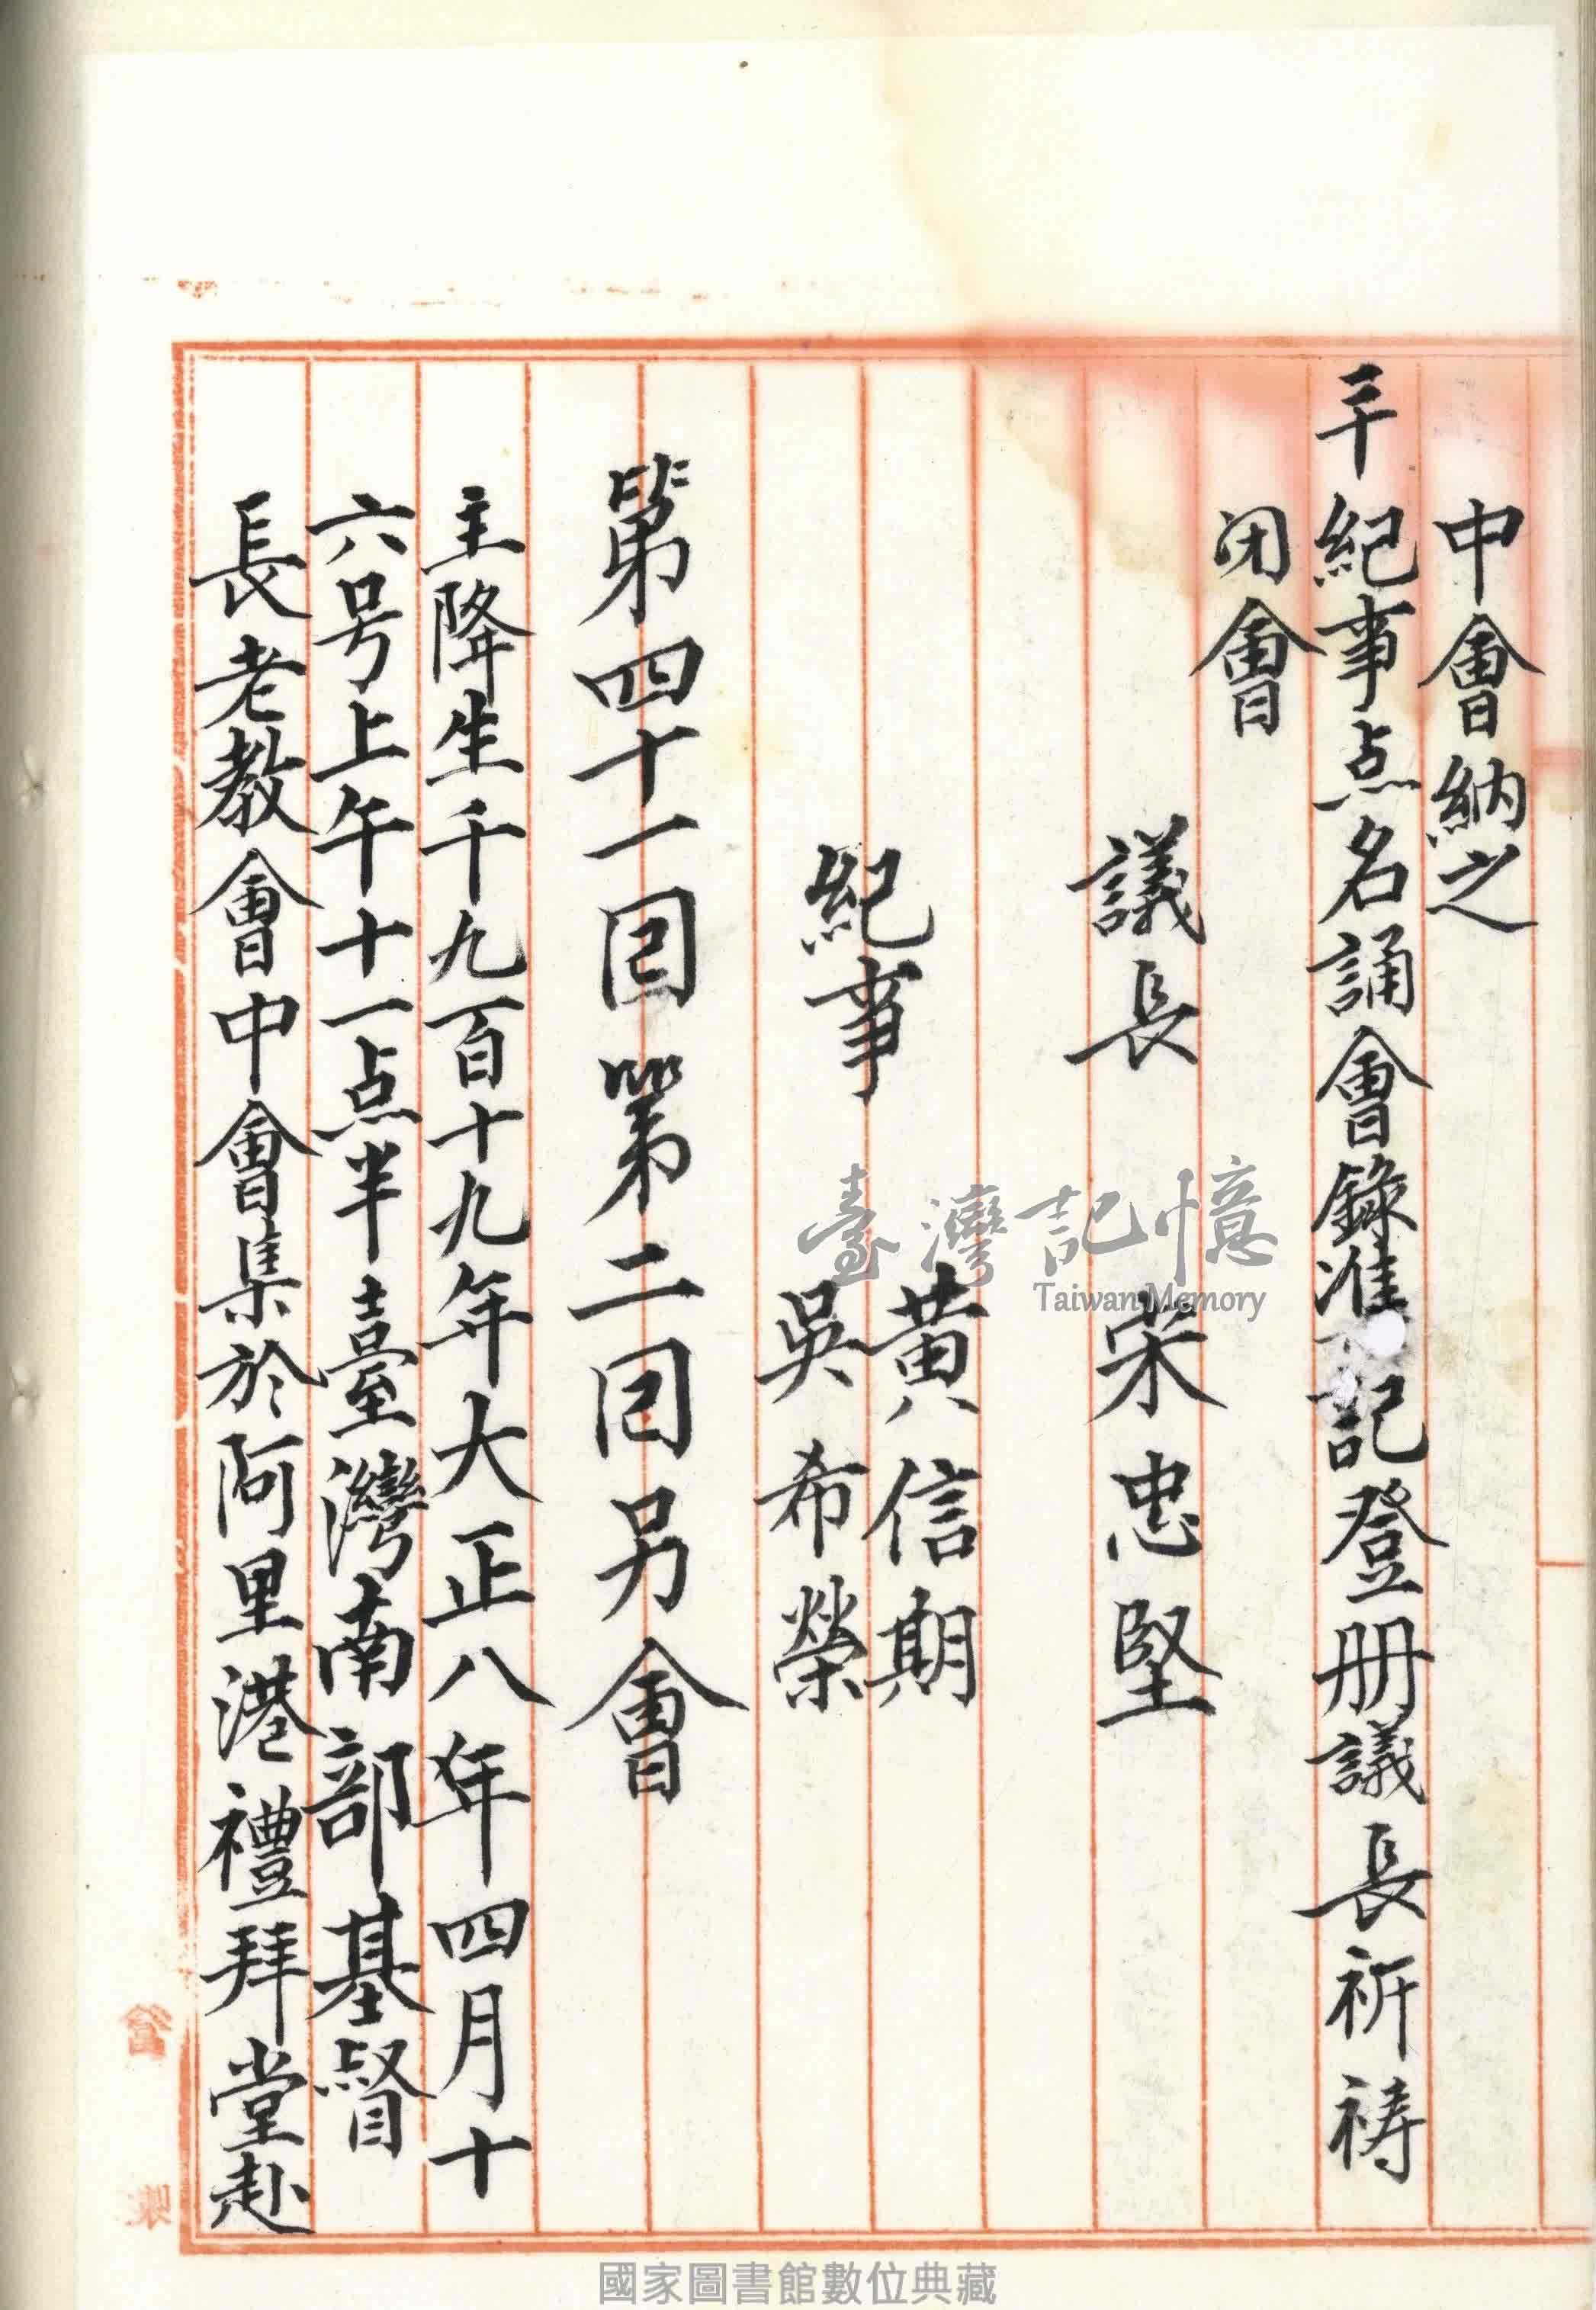 中會納之
三十紀事点名誦會錄准記登册議長祈祷
闭會
議長 宋忠堅
黄信期
紀事 吳希榮
第四十一囘第二囘另會
主降生千九百十九年大正八年四月十
六号上午十一点半臺灣南部基督
長老教會中會集於阿里港禮拜堂赴
臺灣記憶
Taiwan Memory
國家圖書館數位典藏